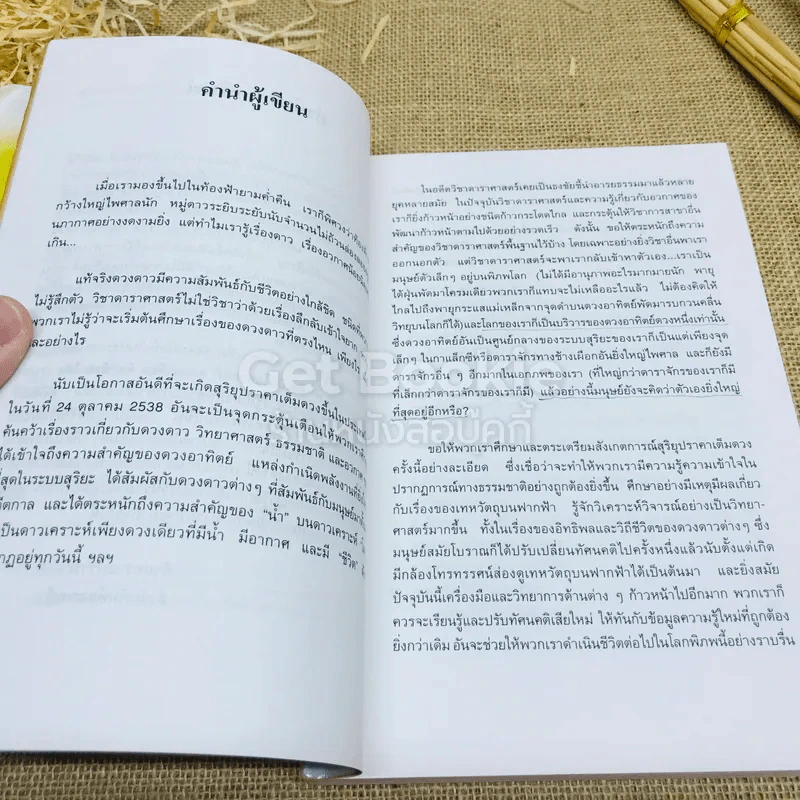 คำนำผู้เขียน
เมื่อเรามองขึ้นไปในท้องฟ้ายามค่ำคืน เราก็พิศวงว่าท้อง
กว้างใหญ่ไพศาลนัก หมู่ดาวระยิบระยับนับจำนวนไม่ถ้วนล่องลอย
นภากาศอย่างงดงามยิ่ง แต่ทำไมเรารู้เรื่องดาว เรื่องอวกาศน้อย
เกิน...
แท้จริงดวงดาวมีความสัมพันธ์กับชีวิตอย่างใกล้ชิด ชนิดที่
ไม่รู้สึกตัว วิชาดาราศาสตร์ไม่ใช่วิชาว่าด้วยเรื่องลึกลับเข้าใจยาก
พวกเราไม่รู้ว่าจะเริ่มต้นศึกษาเรื่องของดวงดาวที่ตรงไหน เพียงไร
และอย่างไร
นับเป็นโอกาสอันดีที่จะเกิดสุริยุปราคาเต็มดวงขึ้นในประเทศ
ในวันที่ 24 ตุลาคม 2538 อันจะเป็นจุดกระตุ้นเตือนให้พวกเรา
ค้นคว้าเรื่องราวเกี่ยวกับดวงดาว วิทยาศาสตร์ ธรรมชาติ และอวกาศ
ได้เข้าใจถึงความสำคัญของดวงอาทิตย์ แหล่งกำเนิดพลังงานที่
ที่สุดในระบบสุริยะ ได้สัมผัสกับดวงดาวต่างๆ ที่สัมพันธ์กับมนุษย์มา
ดีตกาล และได้ตระหนักถึงความสำคัญของ “น้ำ” บนดาวเคราะห์
เป็นดาวเคราะห์เพียงดวงเดียวที่มีน้ำ มีอากาศ และมี “ชีวิต”
กฏอยู่ทุกวันนี้ ฯลฯ
ในอดีตวิชาดาราศาสตร์เคยเป็นธงชัยชี้นำอารยธรรมมาแล้วหลาย
ยุคหลายสมัย ในปัจจุบันวิชาดาราศาสตร์และความรู้เกี่ยวกับอวกาศของ
เราก็ยิ่งก้าวหน้าอย่างชนิดก้าวกระโดดไกล และกระตุ้นให้วิชาการสาขาอื่น
พัฒนาก้าวหน้าตามไปด้วยอย่างรวดเร็ว ดังนั้น ขอให้ตระหนักถึงความ
สำคัญของวิชาดาราศาสตร์พื้นฐานไว้บ้าง โดยเฉพาะอย่างยิ่งวิชาอื่นพาเรา
ออกนอกตัว แต่วิชาดาราศาสตร์จะพาเรากลับเข้าหาตัวเอง...เราเป็น
มนุษย์ตัวเล็กๆ อยู่บนพิภพโลก (ไม่ได้มีอานุภาพอะไรมากมายนัก พายุ
ไต้ฝุ่นพัดมาโครมเดียวพวกเราก็แทบจะไม่เหลืออะไรแล้ว ไม่ต้องคิดให้
ไกลไปถึงพายุกระแสแม่เหล็กจากจุดดำบนดวงอาทิตย์พัดมารบกวนคลื่น
วิทยุบนโลกก็ได้)และโลกของเราก็เป็นบริวารของดวงอาทิตย์ดวงหนึ่งเท่านั้น
ซึ่งดวงอาทิตย์อันเป็นศูนย์กลางของระบบสุริยะของเราก็เป็นแต่เพียงจุด
เล็กๆ ในกาแล็กซีหรือดาราจักรทางช้างเผือกอันยิ่งใหญ่ไพศาล และก็ยังมี
ดาราจักรอื่น ๆ อีกมากในเอกภพของเรา (ที่ใหญ่กว่าดาราจักรของเราก็มี
ที่เล็กกว่าดาราจักรของเราก็มี) แล้วอย่างนี้มนุษย์ยังจะคิดว่าตัวเองยิ่งใหญ่
ที่สุดอยู่อีกหรือ?
ขอให้พวกเราศึกษาและตระเตรียมสังเกตการณ์สุริยุปราคาเต็มดวง
ครั้งนี้อย่างละเอียด ซึ่งเชื่อว่าจะทำให้พวกเรามีความรู้ความเข้าใจใน
ปรากฏการณ์ทางธรรมชาติอย่างถูกต้องยิ่งขึ้น ศึกษาอย่างมีเหตุมีผลเกี่ยว
กับเรื่องของเทหวัตถุบนฟากฟ้า รู้จักวิเคราะห์วิจารณ์อย่างเป็นวิทยา-
ศาสตร์มากขึ้น ทั้งในเรื่องของอิทธิพลและวิถีชีวิตของดวงดาวต่างๆ ซึ่ง
มนุษย์สมัยโบราณก็ได้ปรับเปลี่ยนทัศนคติไปครั้งหนึ่งแล้วนับตั้งแต่เกิด
มีกล้องโทรทรรศน์ส่องดูเทหวัตถุบนฟากฟ้าได้เป็นต้นมา และยิ่งสมัย
ปัจจุบันนี้เครื่องมือและวิทยาการด้านต่าง ๆ ก้าวหน้าไปอีกมาก พวกเราก็
ควรจะเรียนรู้และปรับทัศนคติเสียใหม่ ให้ทันกับข้อมูลความรู้ใหม่ที่ถูกต้อง
ยิ่งกว่าเดิม อันจะช่วยให้พวกเราดำเนินชีวิตต่อไปในโลกพิภพนี้อย่างราบรื่น
Get Bookie
ร้านหนังสือบุ๊คกี้